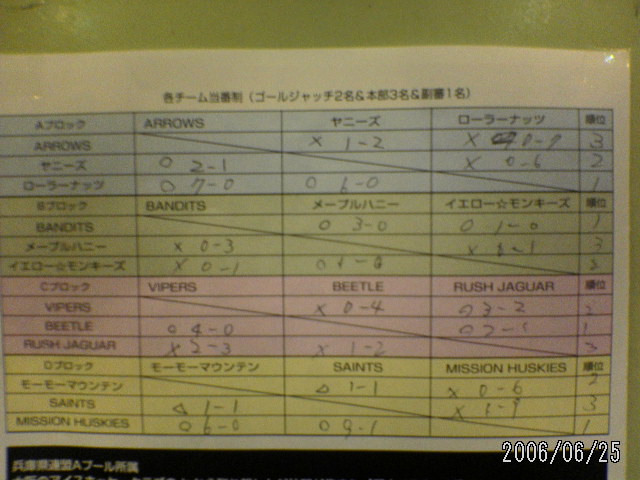 各チーム当番制（ゴールジャッチ2名&本部3名&副審1名）
Aブロック ARROWS ヤニーズ ローラーナッツ 順位
ARROWS × 1-2 × 0-7 3
ヤニーズ ○ 2-1 × 0-6 2
ローラーナッツ ○ 7-0 ○ 6-0 1
Bブロック BANDITS メープルハニー イエロー☆モンキーズ 順位
BANDITS ○ 3-0 ○ 1-0 1
メープルハニー × 0-3 × 3
イエロー☆モンキーズ × 0-1 ○ 2
Cブロック VIPERS BEETLE RUSH JAGUAR 順位
VIPERS × 0-4 ○ 3-2 2
BEETLE ○ 4-0 ○ 2-1 1
RUSH JAGUAR × 2-3 × 1-2 3
Dブロック モーモーマウンテン SAINTS MISSION HUSKIES 順位
モーモーマウンテン △ 1-1 × 0-6 2
SAINTS △ 1-1 × 1-9 3
MISSION HUSKIES ○ 6-0 ○ 9-1 1
兵庫県連盟Aプール所属
2006/06/25